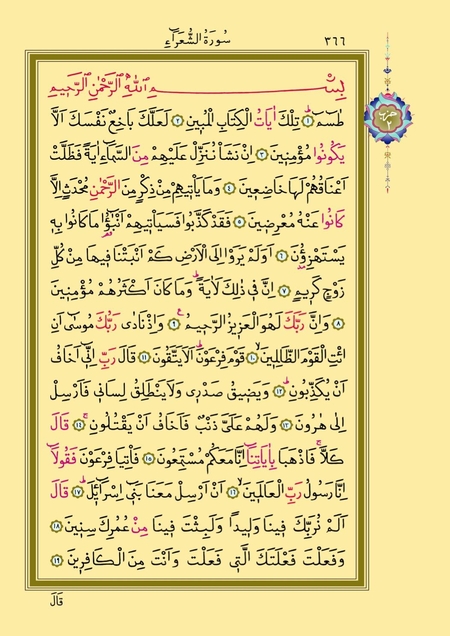 سُورَةُ الشُّعَرَاءِ ٣٦٦
حزب ٢
بِسْمِ اللّٰهِ الرَّحْمٰنِ الرَّحِيمِ
طٰسٓمٓ ۝١ تِلْكَ اٰيَاتُ الْكِتَابِ الْمُبِينِ ۝٢ لَعَلَّكَ بَاخِعٌ نَفْسَكَ اَلَّا
يَكُونُوا مُؤْمِنِينَ ۝٣ اِنْ نَشَأْ نُنَزِّلْ عَلَيْهِمْ مِنَ السَّمَٓاءِ اٰيَةً فَظَلَّتْ
اَعْنَاقُهُمْ لَهَا خَاضِعِينَ ۝٤ وَمَا يَأْتِيهِمْ مِنْ ذِكْرٍ مِنَ الرَّحْمٰنِ مُحْدَثٍ اِلَّا
كَانُوا عَنْهُ مُعْرِضِينَ ۝٥ فَقَدْ كَذَّبُوا فَسَيَأْتِيهِمْ اَنْبٰٓؤُ۬ا مَا كَانُوا بِهِ
يَسْتَهْزِؤُ۫نَ ۝٦ اَوَلَمْ يَرَوْا اِلَى الْاَرْضِ كَمْ اَنْبَتْنَا فِيهَا مِنْ كُلِّ
زَوْجٍ كَرِيمٍ ۝٧ اِنَّ فِي ذٰلِكَ لَاٰيَةً وَمَا كَانَ اَكْثَرُهُمْ مُؤْمِنِينَ
۝٨ وَاِنَّ رَبَّكَ لَهُوَ الْعَزِيزُ الرَّحِيمُ ۝٩ وَاِذْ نَادٰى رَبُّكَ مُوسٰٓى اَنِ
ائْتِ الْقَوْمَ الظَّالِمِينَ ۝١٠ قَوْمَ فِرْعَوْنَ اَلَا يَتَّقُونَ ۝١١ قَالَ رَبِّ اِنِّٓي اَخَافُ
اَنْ يُكَذِّبُونِ ۝١٢ وَيَضِيقُ صَدْرِي وَلَا يَنْطَلِقُ لِسَانِي فَاَرْسِلْ
اِلٰى هٰرُونَ ۝١٣ وَلَهُمْ عَلَيَّ ذَنْبٌ فَاَخَافُ اَنْ يَقْتُلُونِ ۝١٤ قَالَ
كَلَّا فَاذْهَبَا بِاٰيَاتِنَٓا اِنَّا مَعَكُمْ مُسْتَمِعُونَ ۝١٥ فَأْتِيَا فِرْعَوْنَ فَقُولَٓا
اِنَّا رَسُولُ رَبِّ الْعَالَمِينَ ۝١٦ اَنْ اَرْسِلْ مَعَنَا بَنِٓي اِسْرَٓائِلَ ۝١٧ قَالَ
اَلَمْ نُرَبِّكَ فِينَا وَلِيدًا وَلَبِثْتَ فِينَا مِنْ عُمُرِكَ سِنِينَ ۝١٨
وَفَعَلْتَ فَعْلَتَكَ الَّتِي فَعَلْتَ وَاَنْتَ مِنَ الْكَافِرِينَ ۝١٩
قَالَ